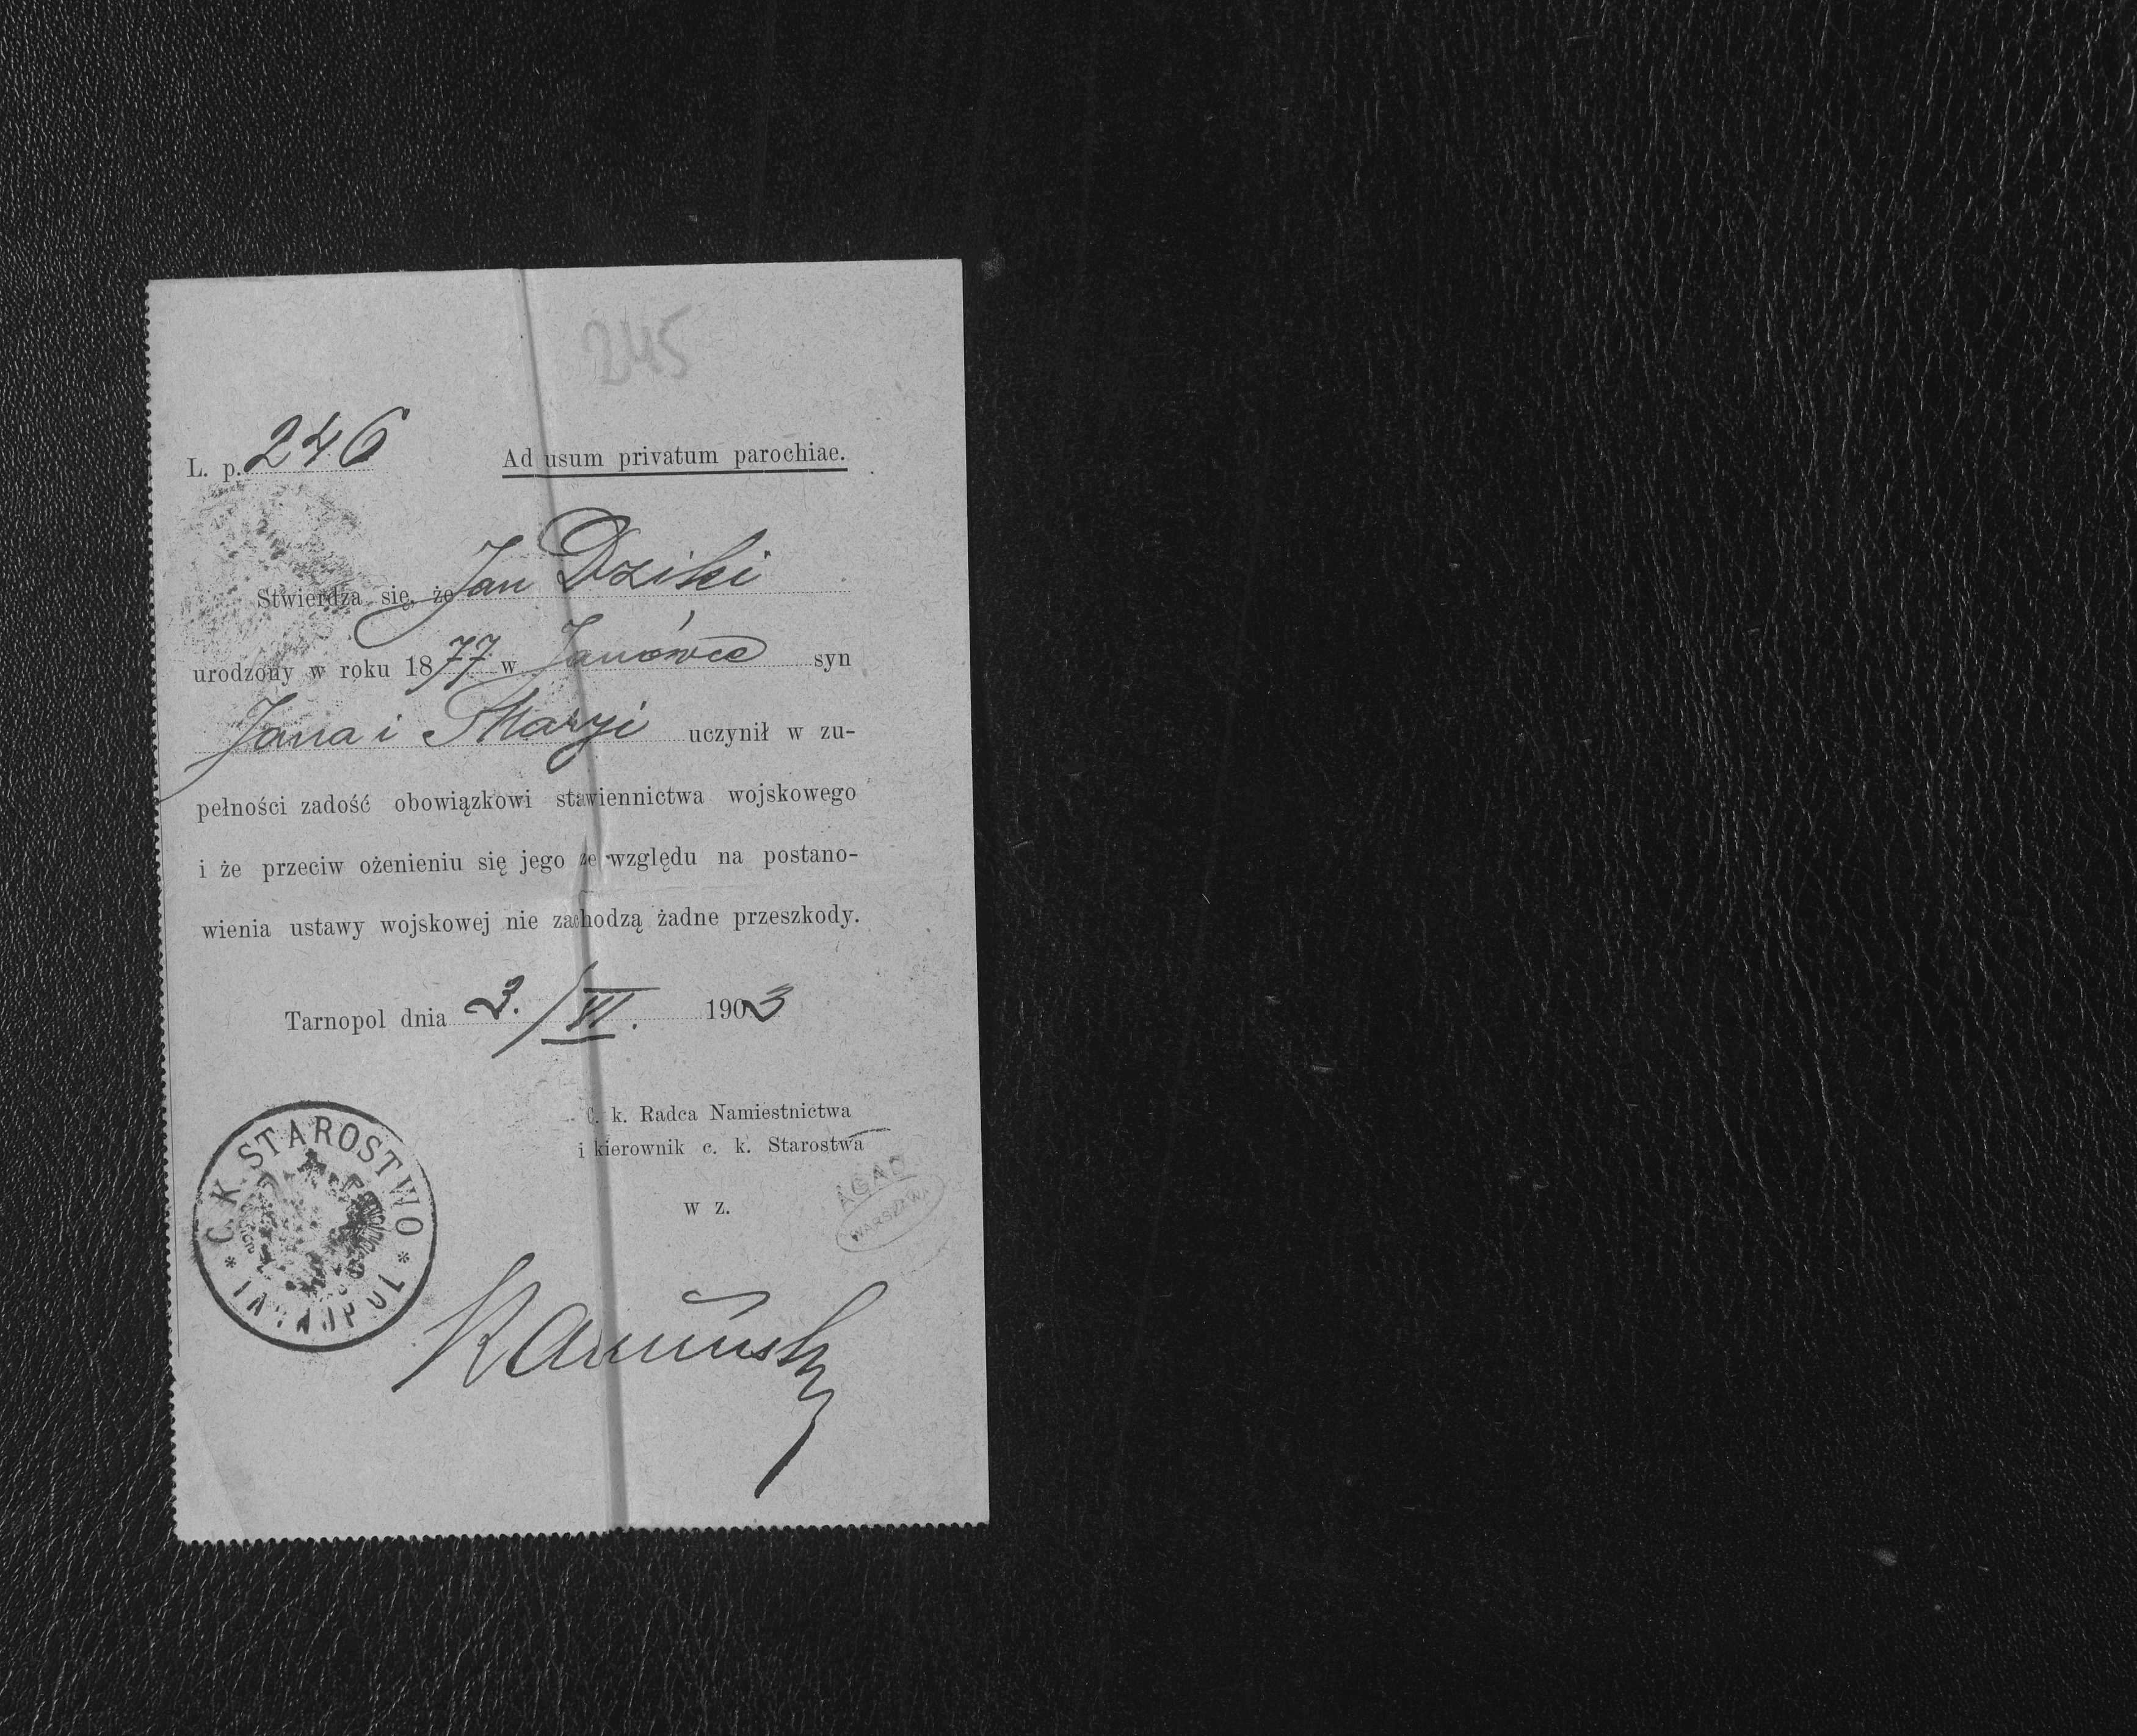 245
L. p. 246
Ad usum privatum parochiae.
Stwierdza się, że Jan Dziki
urodzony w roku 1877 w Janówce syn
Jana i Maryi uczynił w zu-
pełności zadość obowiązkowi stawiennictwa wojskowego
i że przeciw ożenieniu się jego ze względu na postano-
wienia ustawy wojskowej nie zachodzą żadne przeszkody.
Tarnopol dnia 3./VI. 1903
C. k. Radca Namiestnictwa
i kierownik c. k. Starostwa
w z.
C. K. STAROSTWO
AGAD
WARSZAWA